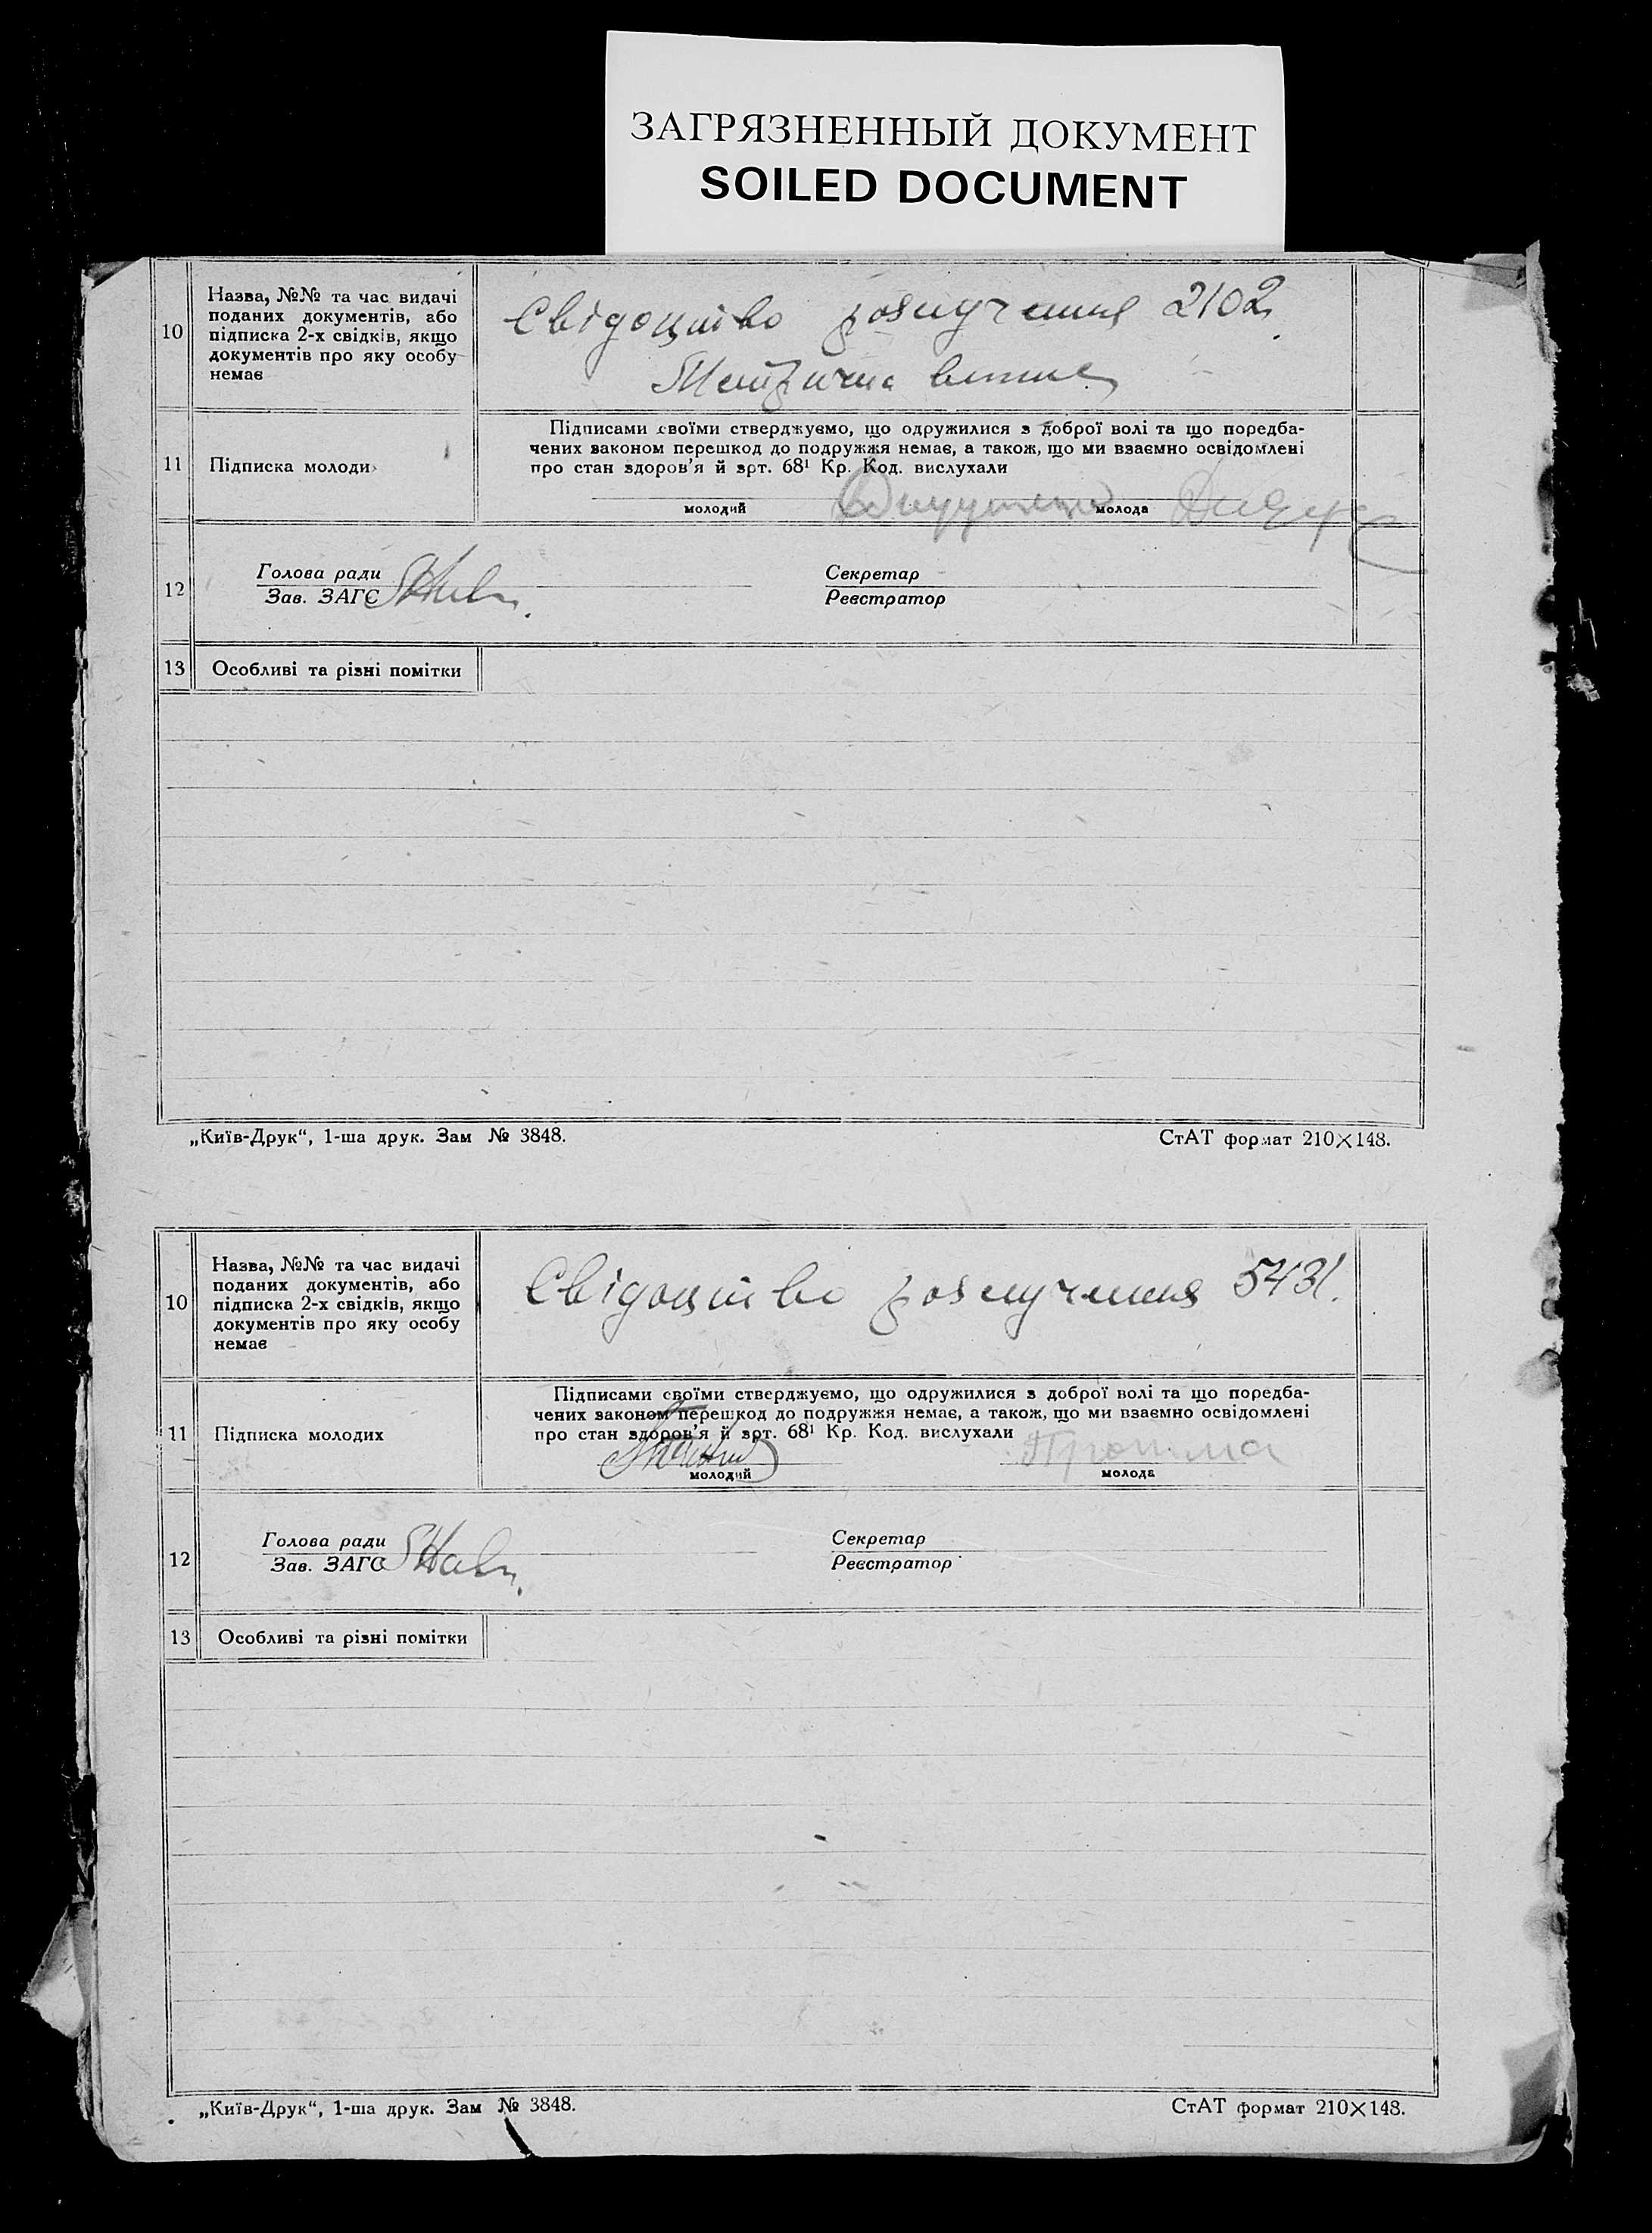 ЗАГРЯЗНЕННЫЙ ДОКУМЕНТ
SOILED DOCUMENT
10
Назва, №№ та час видачі
поданих документів, або
підписка 2-х свідків, якщо
документів про яку особу
немає
Свідоцтво розлучення 2102
Метрична
11
Підписка молоди
Підписами своїми стверджуємо, що одружилися з доброї волі та що поредба-
чених законом перешкод до подружжя немає, а також, що ми взаємно освідомлені
про стан здоров'я й зрт. 68¹ Кр. Код. вислухали
молодий
молода
12
Голова ради
Зав. ЗАГС
Секретар
Реєстратор
13
Особливі та різні помітки
„Київ-Друк“, 1-ша друк. Зам № 3848.
СтАТ формат 210×148.
10
Назва, №№ та час видачі
поданих документів, або
підписка 2-х свідків, якщо
документів про яку особу
немає
Свідоцтво розлучення 5431.
11
Підписка молодих
Підписами своїми стверджуємо, що одружилися з доброї волі та що поредба-
чених законом перешкод до подружжя немає, а також, що ми взаємно освідомлені
про стан здоров'я й зрт. 68¹ Кр. Код. вислухали
молодий
молода
12
Голова ради
Зав. ЗАГС
Секретар
Реєстратор
13
Особливі та різні помітки
„Київ-Друк“, 1-ша друк. Зам № 3848.
СтАТ формат 210×148.